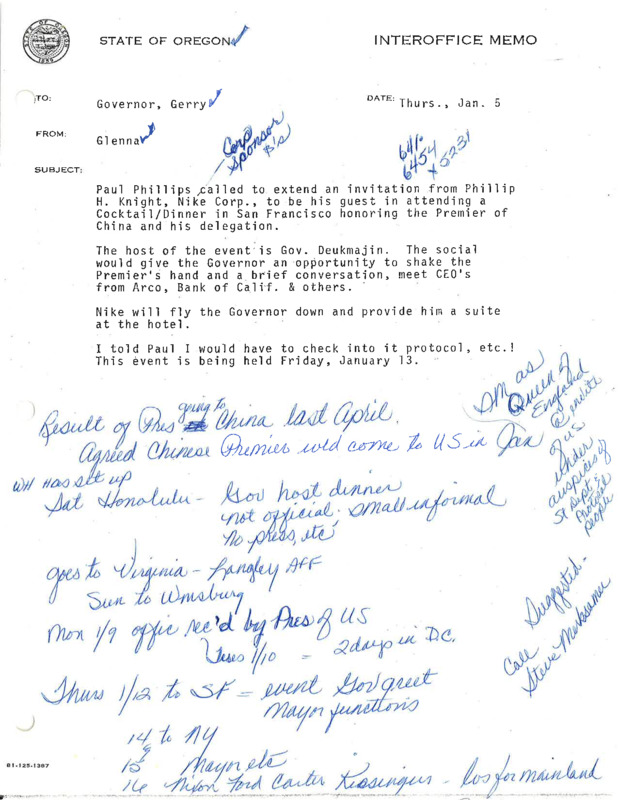 STATE OF OREGON
INTEROFFICE MEMO
TO:
Governor, Gerry
DATE: Thurs., Jan. 5
FROM:
Glenna
Corp
Sponsor
B's
641.
6454
x 5231
SUBJECT:
Paul Phillips called to extend an invitation from Phillip
H. Knight, Nike Corp., to be his guest in attending a
Cocktail/Dinner in San Francisco honoring the Premier of
China and his delegation.
The host of the event is Gov. Deukmajin. The social
would give the Governor an opportunity to shake the
Premier's hand and a brief conversation, meet CEO's
from Arco, Bank of Calif. & others.
Nike will fly the Governor down and provide him a suite
at the hotel.
I told Paul I would have to check into it protocol, etc.!
This event is being held Friday, January 13.
Result of Pres going to China last April.
Agreed Chinese Premier wld come to US in Jan
SM as
Queen of
England
of US
Under
auspices of
St Dept &
Protocol
People
WH Has set up
Sat Honolulu - Gov host dinner
not official. small informal
No press, etc
goes to Virginia - Langley AFF
Sun to Wmsburg
Mon 1/9 offic rec'd by Pres of US
Tues 1/10 = 2 days in D.C.
Suggested -
Call
Steve
Thurs 1/12 to SF = event Gov greet
Mayor functions
14 to NY
15 Mayor etc
16 Nixon Ford Carter Kissinger - for mainland
81-125-1387